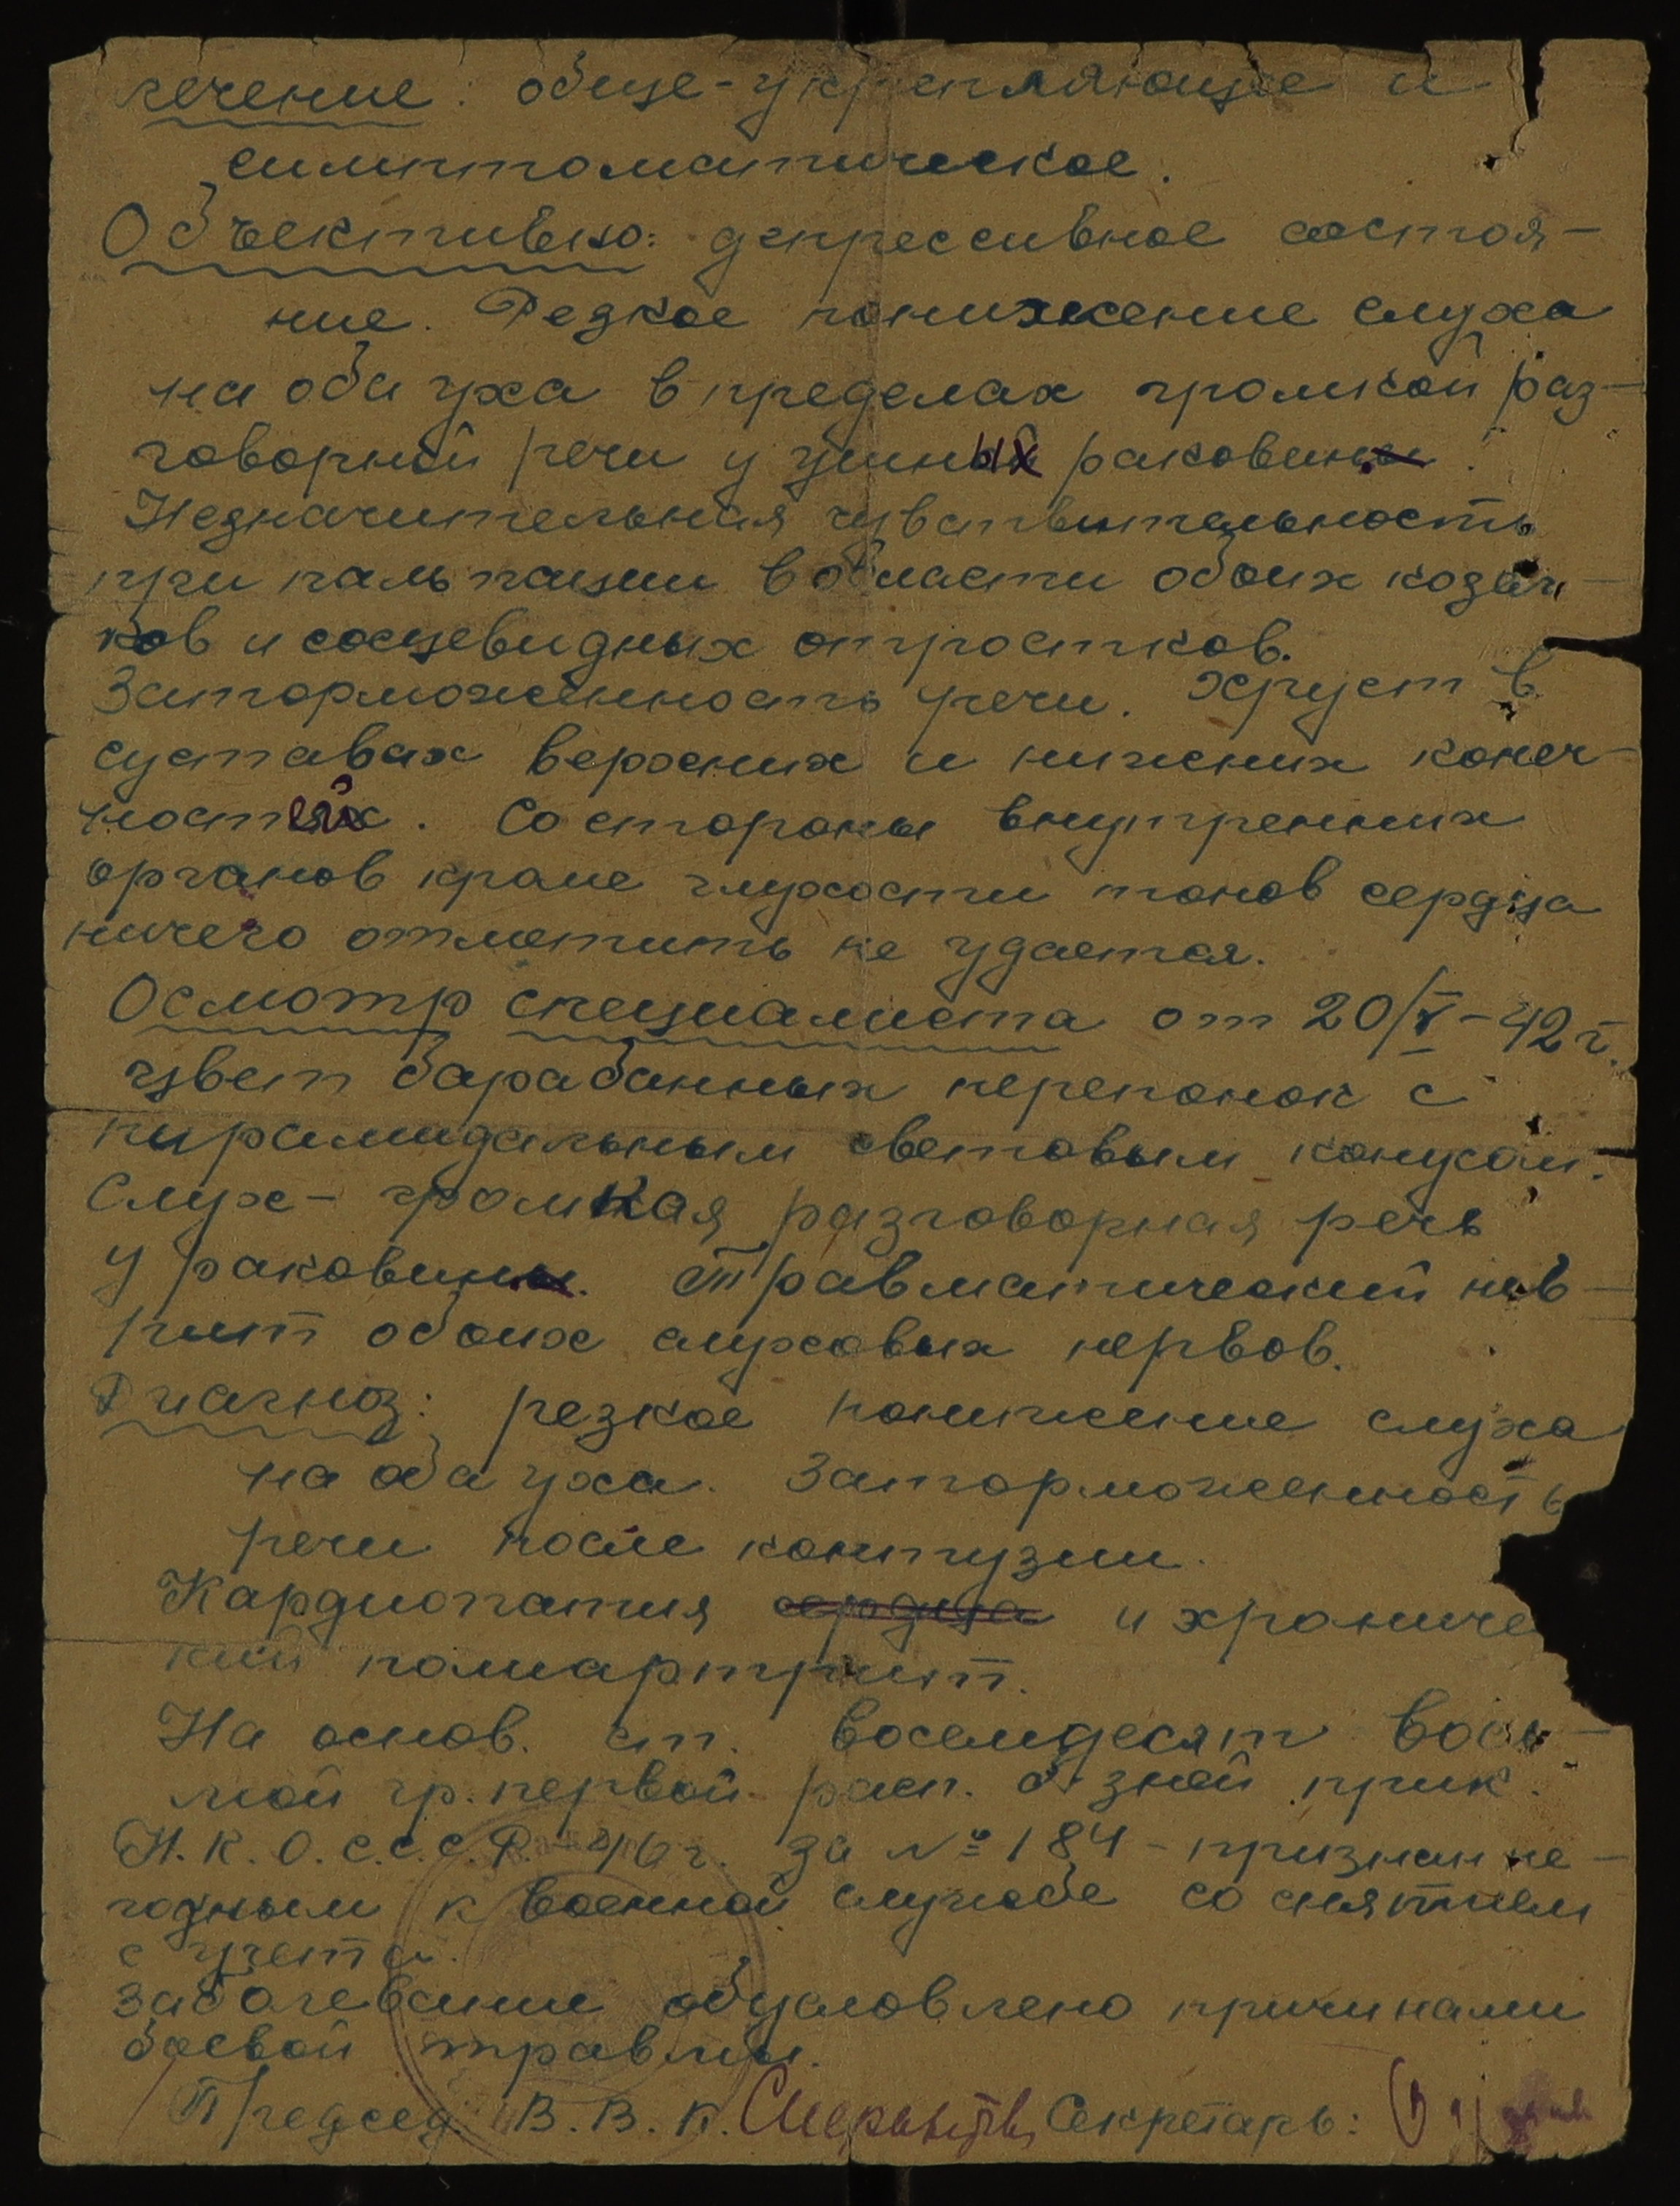 лечение: обще-укрепляющее и
симптоматическое.
Объективно: депрессивное состоя-
ние. Резкое понижение слуха
на оба уха в пределах громкой раз-
говорной речи у ушных раковин.
Незначительная чувствительность
при пальпации в области обоих козел-
ков и сосцевидных отростков.
Заторможенность речи. Хруст в
суставах верхних и нижних конеч-
ностей. Со стороны внутренних
органов кроме глухости тонов сердца
ничего отметить не удается.
Осмотр специалиста от 20/V-42 г.
цвет барабанных перепонок с
пирамидальным световым конусом.
Слух - громкая разговорная речь
у раковин. Травматический нев-
рит обоих слуховых нервов.
Диагноз: резкое понижение слуха
на оба уха. Заторможенность
речи после контузии.
Кардиопатия сердца и хрониче
кий полиартрит.
На основ. ст. восемдесят вось-
мой гр. первой расп. б-зней прик.
Н.К.О.С.С.С.Р. 40 г. за № 184 - признан не-
годным к военной службе со снятием
с учета.
Заболевание обусловлено причинами
боевой травмы.
Председ. В.В.К. Секретарь: